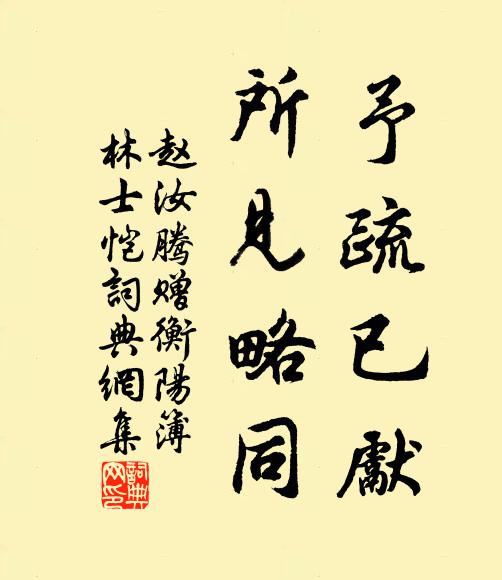 予疏已獻
所見略同
赵汝腾赠衡陽簿
林士恺詞典網集